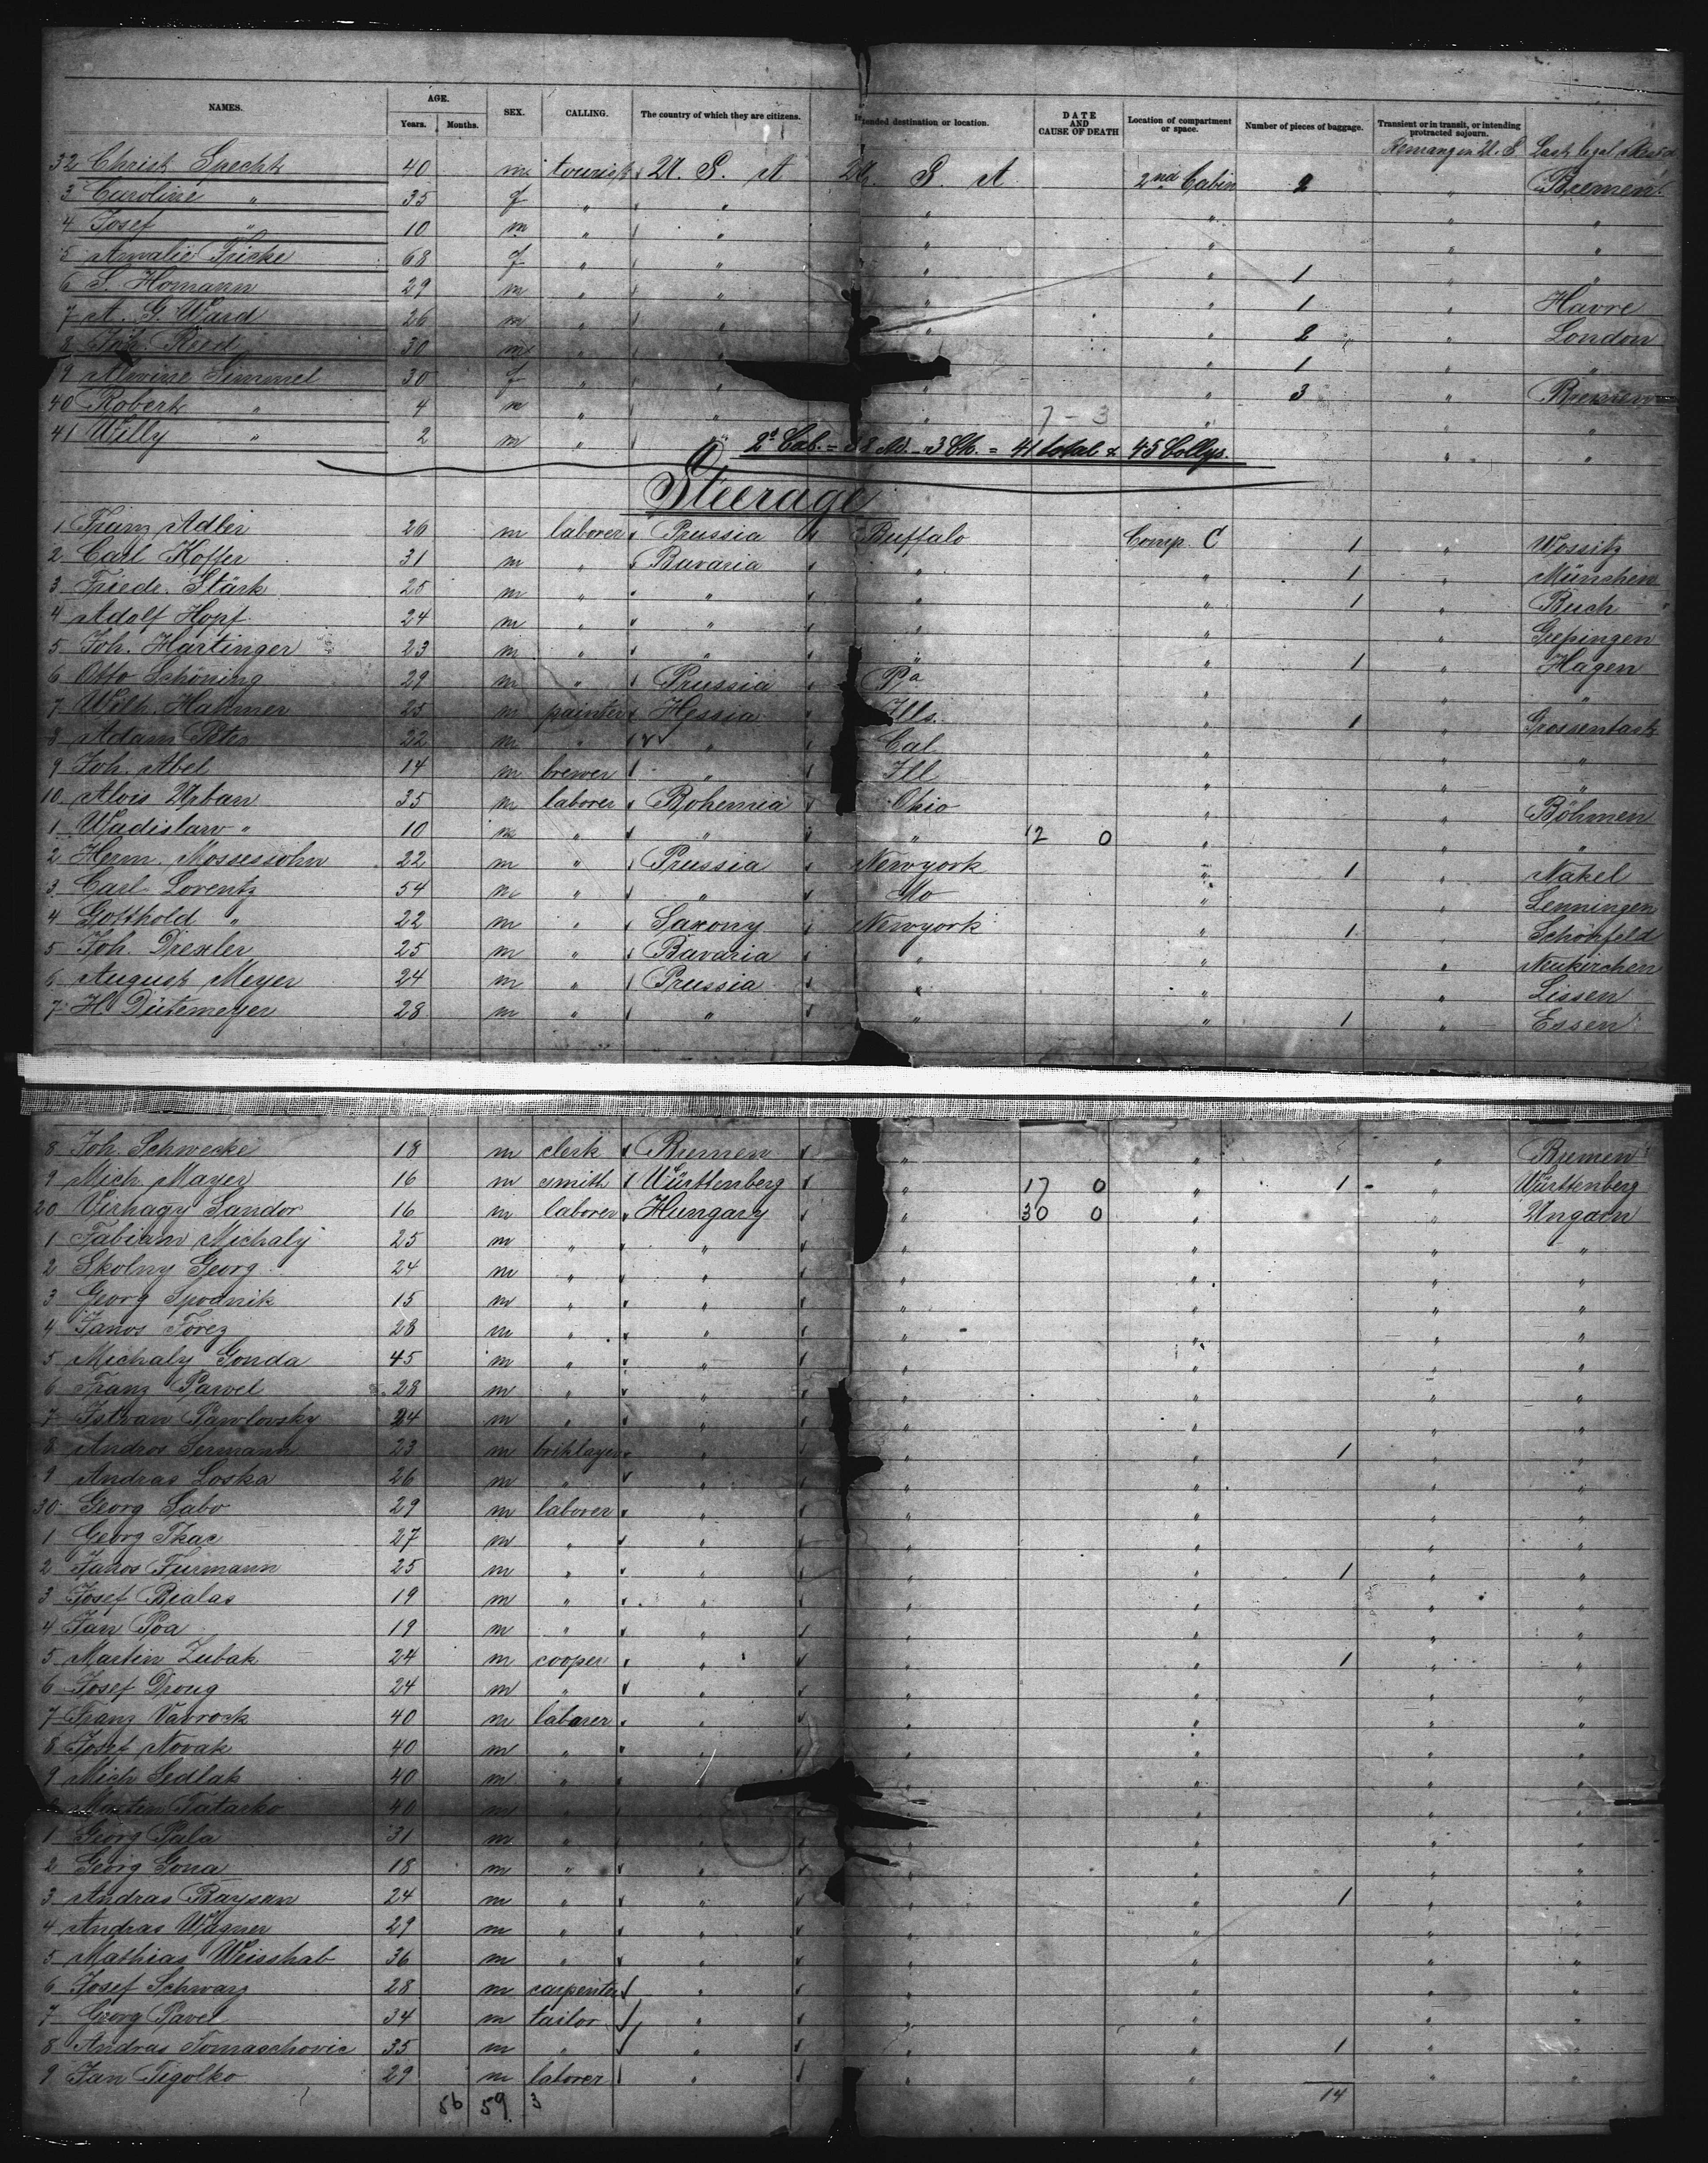 NAMES. AGE. Years. Months. SEX. CALLING. The country of which they are citizens. Intended destination or location. DATE AND CAUSE OF DEATH Location of compartment or space. Number of pieces of baggage. Transient or in transit, or intending protracted sojourn.
Last legal
32 Christ Specht 40 m tourist U. S. A U. S. A 2nd Cabin 2 " Bremen
3 Caroline " 35 f " " " " " "
4 Josef " 10 m " " " " " "
5 Amalie Fricke 68 f " " " " 1 " "
6 S. Homann 29 m " " " " 1 " Havre
7 A. G. Ward 26 m " " " " 2 " London
8 Joh. Reed 30 m " " " " 1 " "
9 Alwine Simmel 30 f " " " " 3 " Bremen
40 Robert " 4 m " " " " " "
41 Willy " 2 m " " " "
7 - 3
2d Cab. = 38 Ad. - 3 Ch. = 41 total & 45 Collys.
Steerage
1 Franz Adler 26 m laborer Prussia Buffalo Comp. C 1 " Wossitz
2 Carl Hoffer 31 m " Bavaria " " 1 " München
3 Friedr. Stärk 25 m " " " " 1 " Buch
4 Adolf Hopf 24 m " " " " "
5 Joh. Hartinger 23 m " " " " 1 " Hagen
6 Otto Schöning 29 m " Prussia Pa " " "
7 Wilh. Hahmer 25 m painter Hessia Ills. " 1 "
8 Adam Peter 22 m " " Cal " " "
9 Joh. Abel 14 m brewer " Ill " " "
10 Alois Urban 35 m laborer Bohemia Ohio " " Böhmen
1 Wadislaw " 10 m " " " 12 0 " " "
2 Herm. Mossessohn 22 m " Prussia Newyork " 1 " Nakel
3 Carl Lorentz 54 m " " Mo " " Lenningen
4 Gotthold " 22 m " Saxony Newyork " 1 " Schönfeld
5 Joh. Drexler 25 m " Bavaria " " " Neukirchen
6 August Meyer 24 m " Prussia " " " Lissen
7 H. Dütemeyer 28 m " " " " 1 " Essen
8 Joh. Schwecke 18 m clerk Bremen " " " Bremen
9 Mich. Mayer 16 m smith Württenberg " 17 0 " 1 " Württenberg
20 Virhagy Sandor 16 m laborer Hungary " 30 0 " " Ungarn
1 Fabiam Michaly 25 m " " " " " "
2 Skolny Georg 24 m " " " " " "
3 Georg Spodnik 15 m " " " " " "
4 Janos Forez 28 m " " " " " "
5 Michaly Gonda 45 m " " " " " "
6 Franz Pawel 28 m " " " " " "
7 Istvan Pawlovsky 24 m " " " " " "
8 Andros Sermann 23 m briklayer " " " 1 " "
9 Andras Loska 26 m " " " " " "
30 Georg Sabo 29 m laborer " " " " "
1 Georg Tkac 27 m " " " " " "
2 Janos Furmann 25 m " " " " 1 " "
3 Josef Bialas 19 m " " " " " "
4 Jan Poa 19 m " " " " " "
5 Martin Zubak 24 m cooper " " " 1 " "
6 Josef Droug 24 m " " " " " "
7 Franz Vavrock 40 m laborer " " " " "
8 Josef Novak 40 m " " " " " "
9 Mich Sedlak 40 m " " " " " "
Marten Tatarko 40 m " " " " " "
1 Georg Pala 31 m " " " " " "
2 Georg Gona 18 m " " " " " "
3 Andras Baysan 24 m " " " " 1 " "
4 Andras Wagner 29 m " " " " " "
5 Mathias Weisshab 36 m " " " " " "
6 Josef Schwarz 28 m carpenter " " " " "
7 Georg Pavel 34 m tailor " " " " "
8 Andras Tomaschovic 35 m " " " " 1 " "
9 Jan Tigolko 29 m laborer " " " " "
56 59 3 14